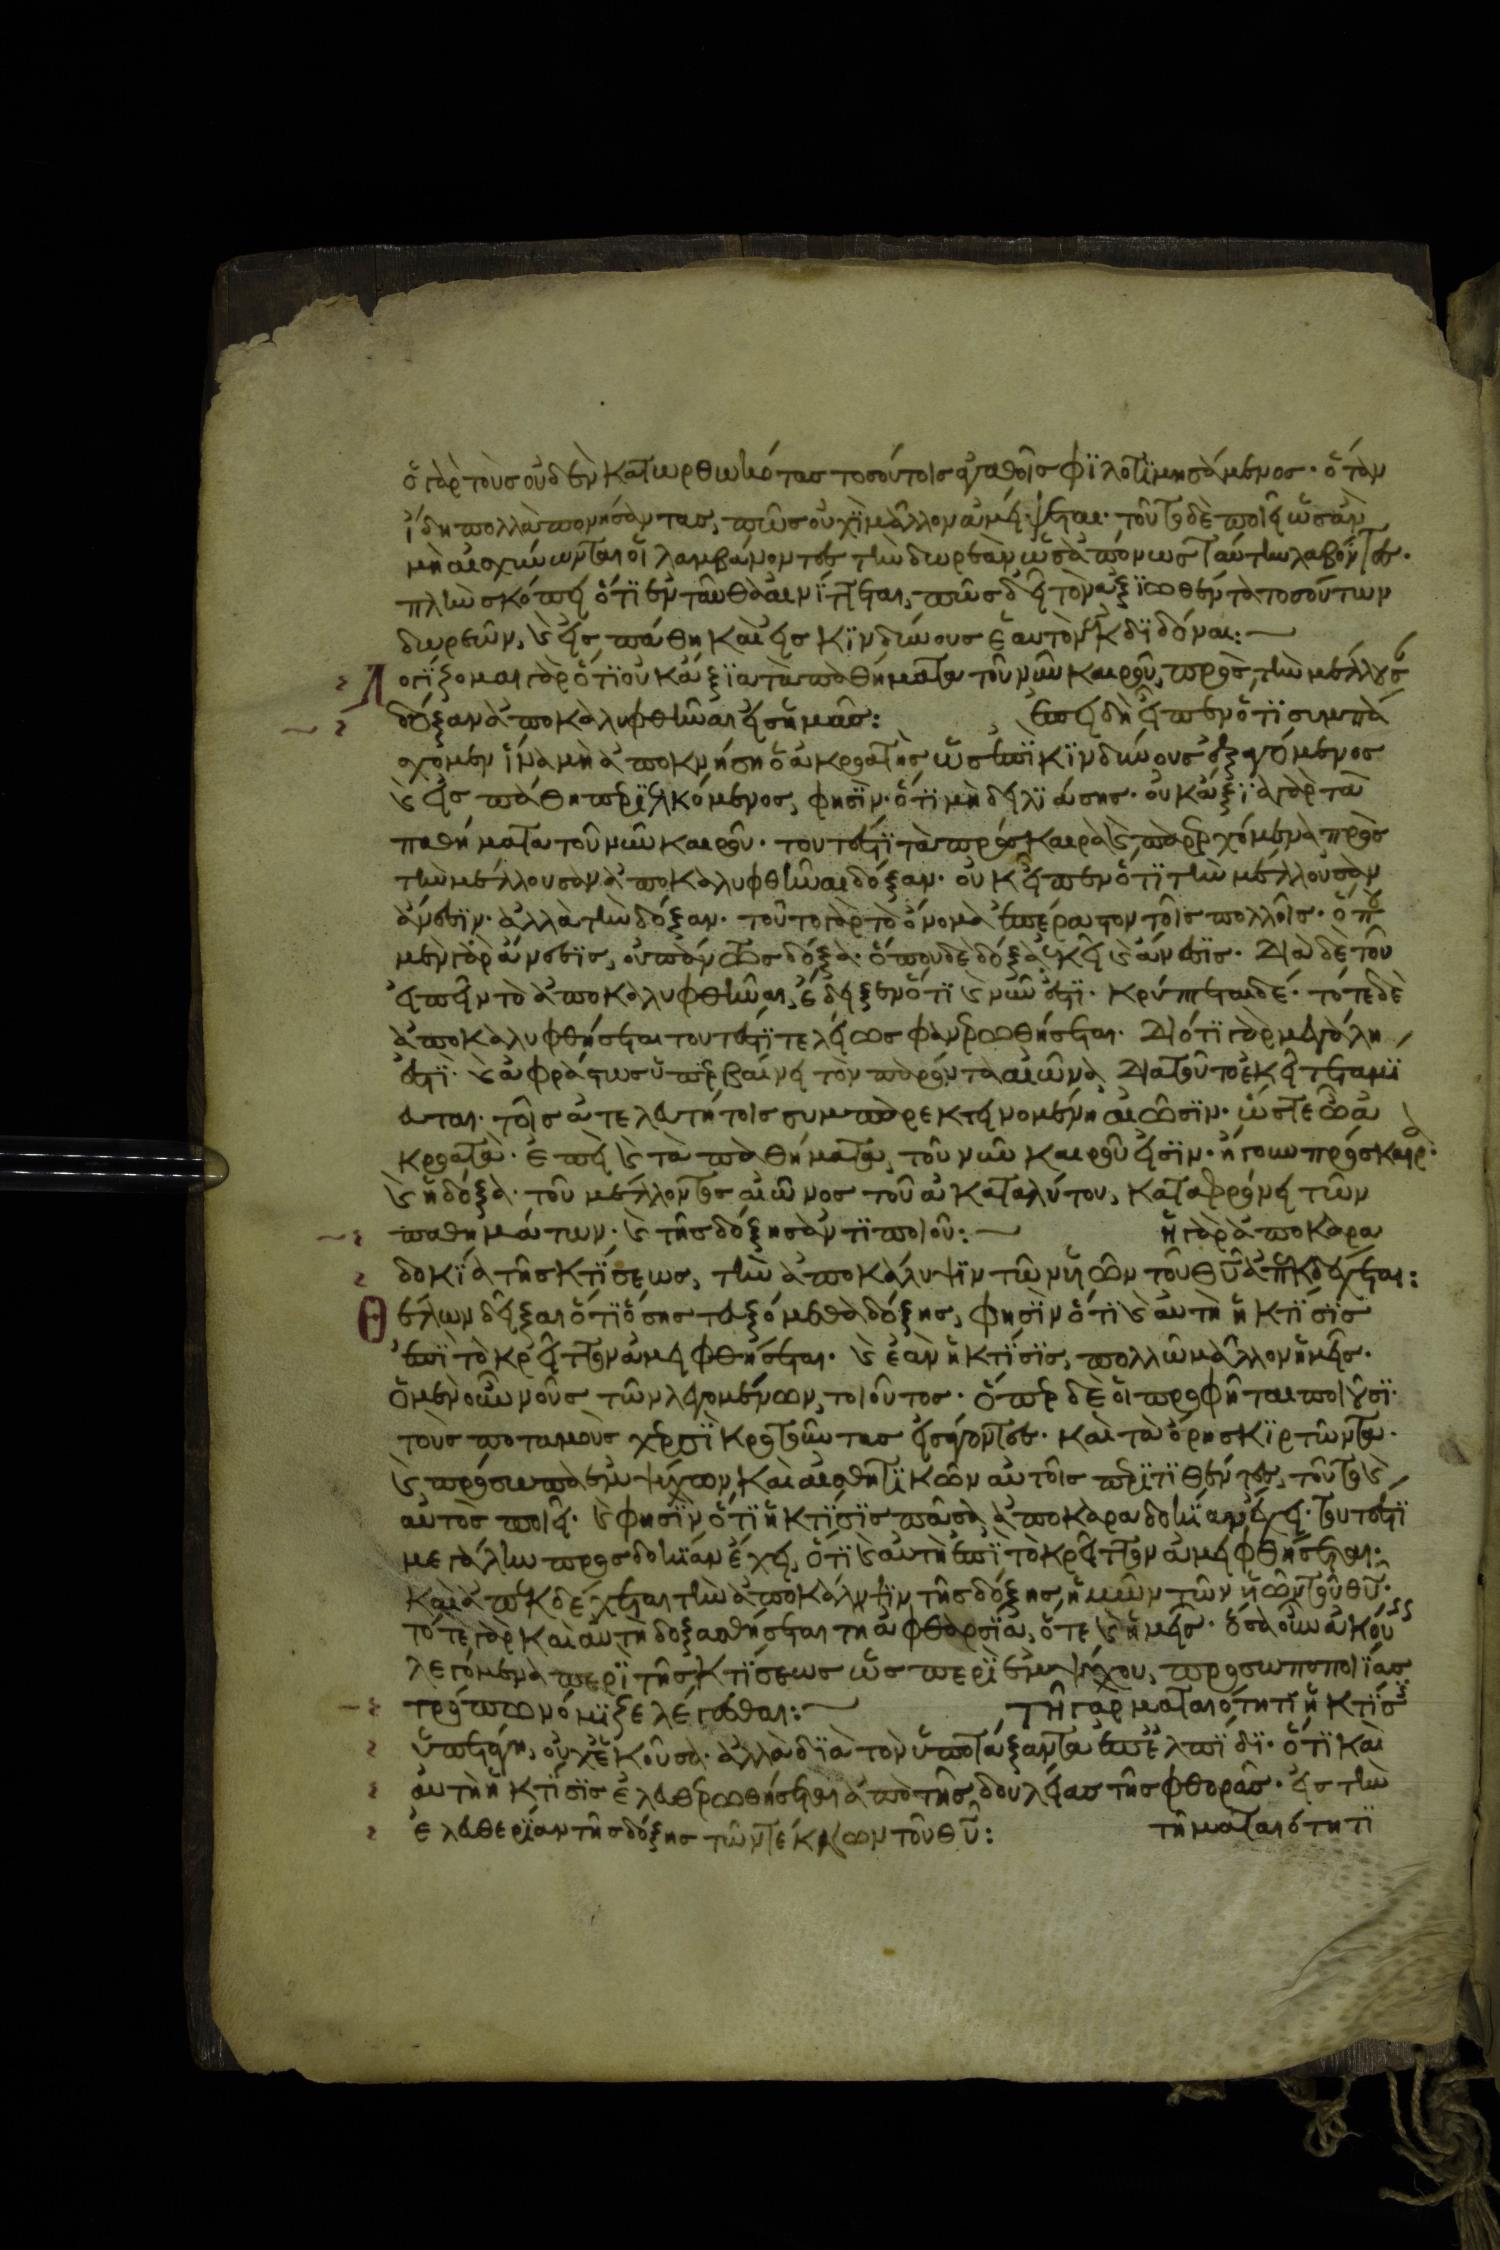 ὁ γὰρ τοὺς οὐδὲν κατωρθωκότας τοσούτοις ἀγαθοῖς φιλοτιμησάμενος· ὅταν
ἴδη πολλὰ πονήσαντας, πῶς οὐχὶ μᾶλλον ἀμείψεται· τοῦτο δὲ ποιεῖ ὡς ἂν
μὴ αἰσχύνωνται οἱ λαμβάνοντες τὴν δωρεὰν ὡς ἀπόνως ταύτην λαβόντες·
πλὴν σκόπει ὅτι ἐνταῦθα αἰνίττεται, πῶς δεῖ τὸν ἀξιωθέντα τοσούτων
δωρεῶν, καὶ εἰς πάθη καὶ εἰς κινδύνους ἑαυτὸν ἐκδιδόναι:
Λογίζομαι γὰρ ὅτι οὐκ ἄξια τὰ παθήματα τοῦ νῦν καιροῦ, πρὸς τὴν μέλλουσ
δόξαν ἀποκαλυφθῆναι εἰς ἡμᾶς: ἐπειδὴ εἶπεν ὅτι συμπά
σχομεν ἵνα μὴ ἀποκνήση ὁ ἀκροατὴς ὡς ἐπὶ κινδύνους ἐξαγόμενος
καὶ εἰς πάθη περιελκόμενος, φησὶν· ὅτι μὴ δειλιάσης· οὐκ ἄξια γὰρ τὰ
παθήματα τοῦ νῦν καιροῦ· τουτέστι τὰ πρόσκαιρα καὶ παρερχόμενα πρὸς
τὴν μέλλουσαν ἀποκαλυφθῆναι δόξαν· οὐκ εἶπεν ὅτι τὴν μέλλουσαν
ἄνεσιν· ἀλλὰ τὴν δόξαν· τοῦτο γὰρ τὸ ὄνομα ἐπέραστον τοῖς πολλοῖς· ὅπου
μὲν γὰρ ἄνεσις, οὐ πάντως δόξα· ὅπου δὲ δόξα, ἐκεῖ καὶ ἄνεσις· Διὰ δὲ τοῦ
εἰπεῖν τὸ ἀποκαλυφθῆναι, ἔδειξεν ὅτι καὶ νῦν ἐστι· κρύπτεται δέ· τότε δὲ
ἀποκαλυφθήσεται τουτέστι τελείως φανερωθήσεται· Διότι γὰρ μεγάλη
ἐστὶ· καὶ ἀφράστως ὑπερβαίνει τὸν παρόντα αἰῶνα Διὰ τοῦτο ἐκεῖ τεταμί
ευται· τοῖς ἀτελευτήτοις συμπαρεκτεινομένη αἰῶσιν· ὥστε ὦ ἀ
κροατὰ· ἐπεὶ καὶ τὰ παθήματα, τοῦ νῦν καιροῦ εἰσιν· ἤγουν πρόσκαιρα·
καὶ ἡ δόξα· τοῦ μέλλοντος αἰῶνος τοῦ ἀκαταλύτου, καταφρόνει τῶν
παθημάτων· καὶ τῆς δόξης ἀντιποιοῦ: ἡ γὰρ ἀποκαρα
δοκία τῆς κτίσεως, τὴν ἀποκάλυψιν τῶν υἱῶν τοῦ θῦ ἀπεκδέχεται:
Θέλων δεῖξαι ὅτι ὅσης τευξόμεθα δόξης, φησὶν ὅτι καὶ αὐτὴ ἡ κτίσις
ἐπὶ τὸ κρεῖττον ἀμειφθήσεται· καὶ ἐὰν ἡ κτίσις, πολλῶ μᾶλλον ἡμεῖς·
ὁ μὲν οὖν νοῦς τῶν λεγομένων, τοιοῦτος· ὅπερ δὲ οἱ προφῆται ποιοῦσι·
τοὺς ποταμοὺς χερσὶ κροτοῦντας εἰσάγοντες· καὶ τὰ ὄρη σκιρτῶντα·
καὶ πρόσωπα ἐμψύχων καὶ αἰσθητικῶν αὐτοῖς περιτιθέντες, τοῦτο καὶ
αὐτὸς ποιεῖ· καὶ φησὶν ὅτι ἡ κτίσις πᾶσα, ἀποκαραδοκίαν ἔχει· τουτέστι
μεγάλην προσδοκίαν ἔχει, ὅτι καὶ αὐτὴ ἐπὶ τὸ κρεῖττον ἀμειφθήσεται·
καὶ ἀπεκδέχεται τὴν ἀποκάλυψιν τῆς δόξης, ἡμῶν τῶν υἱῶν τοῦ θῦ·
τότε γὰρ καὶ αὐτὴ δοξασθήσεται τῆ ἀφθαρσία, ὅτε καὶ ἡμεῖς· ὅσα οὖν ἀκού
λεγόμενα περὶ τῆς κτίσεως ὡς περὶ ἐμψύχου, προσωποποιίας
τρόπω νόμιζε λέγεσθαι: Τῆ γὰρ ματαιότητι ἡ κτίσ
ὑπετάγη, οὐχ ἑκοῦσα· ἀλλὰ διὰ τὸν ὑποτάξαντα ἐπ' ἐλπίδι· ὅτι καὶ
αὐτὴ ἡ κτίσις ἐλευθερωθήσεται ἀπὸ τῆς δουλείας τῆς φθορᾶς· εἰς τὴν
ἐλευθερίαν τῆς δόξης τῶν τέκνων τοῦ θῦ: τῆ ματαιότητι